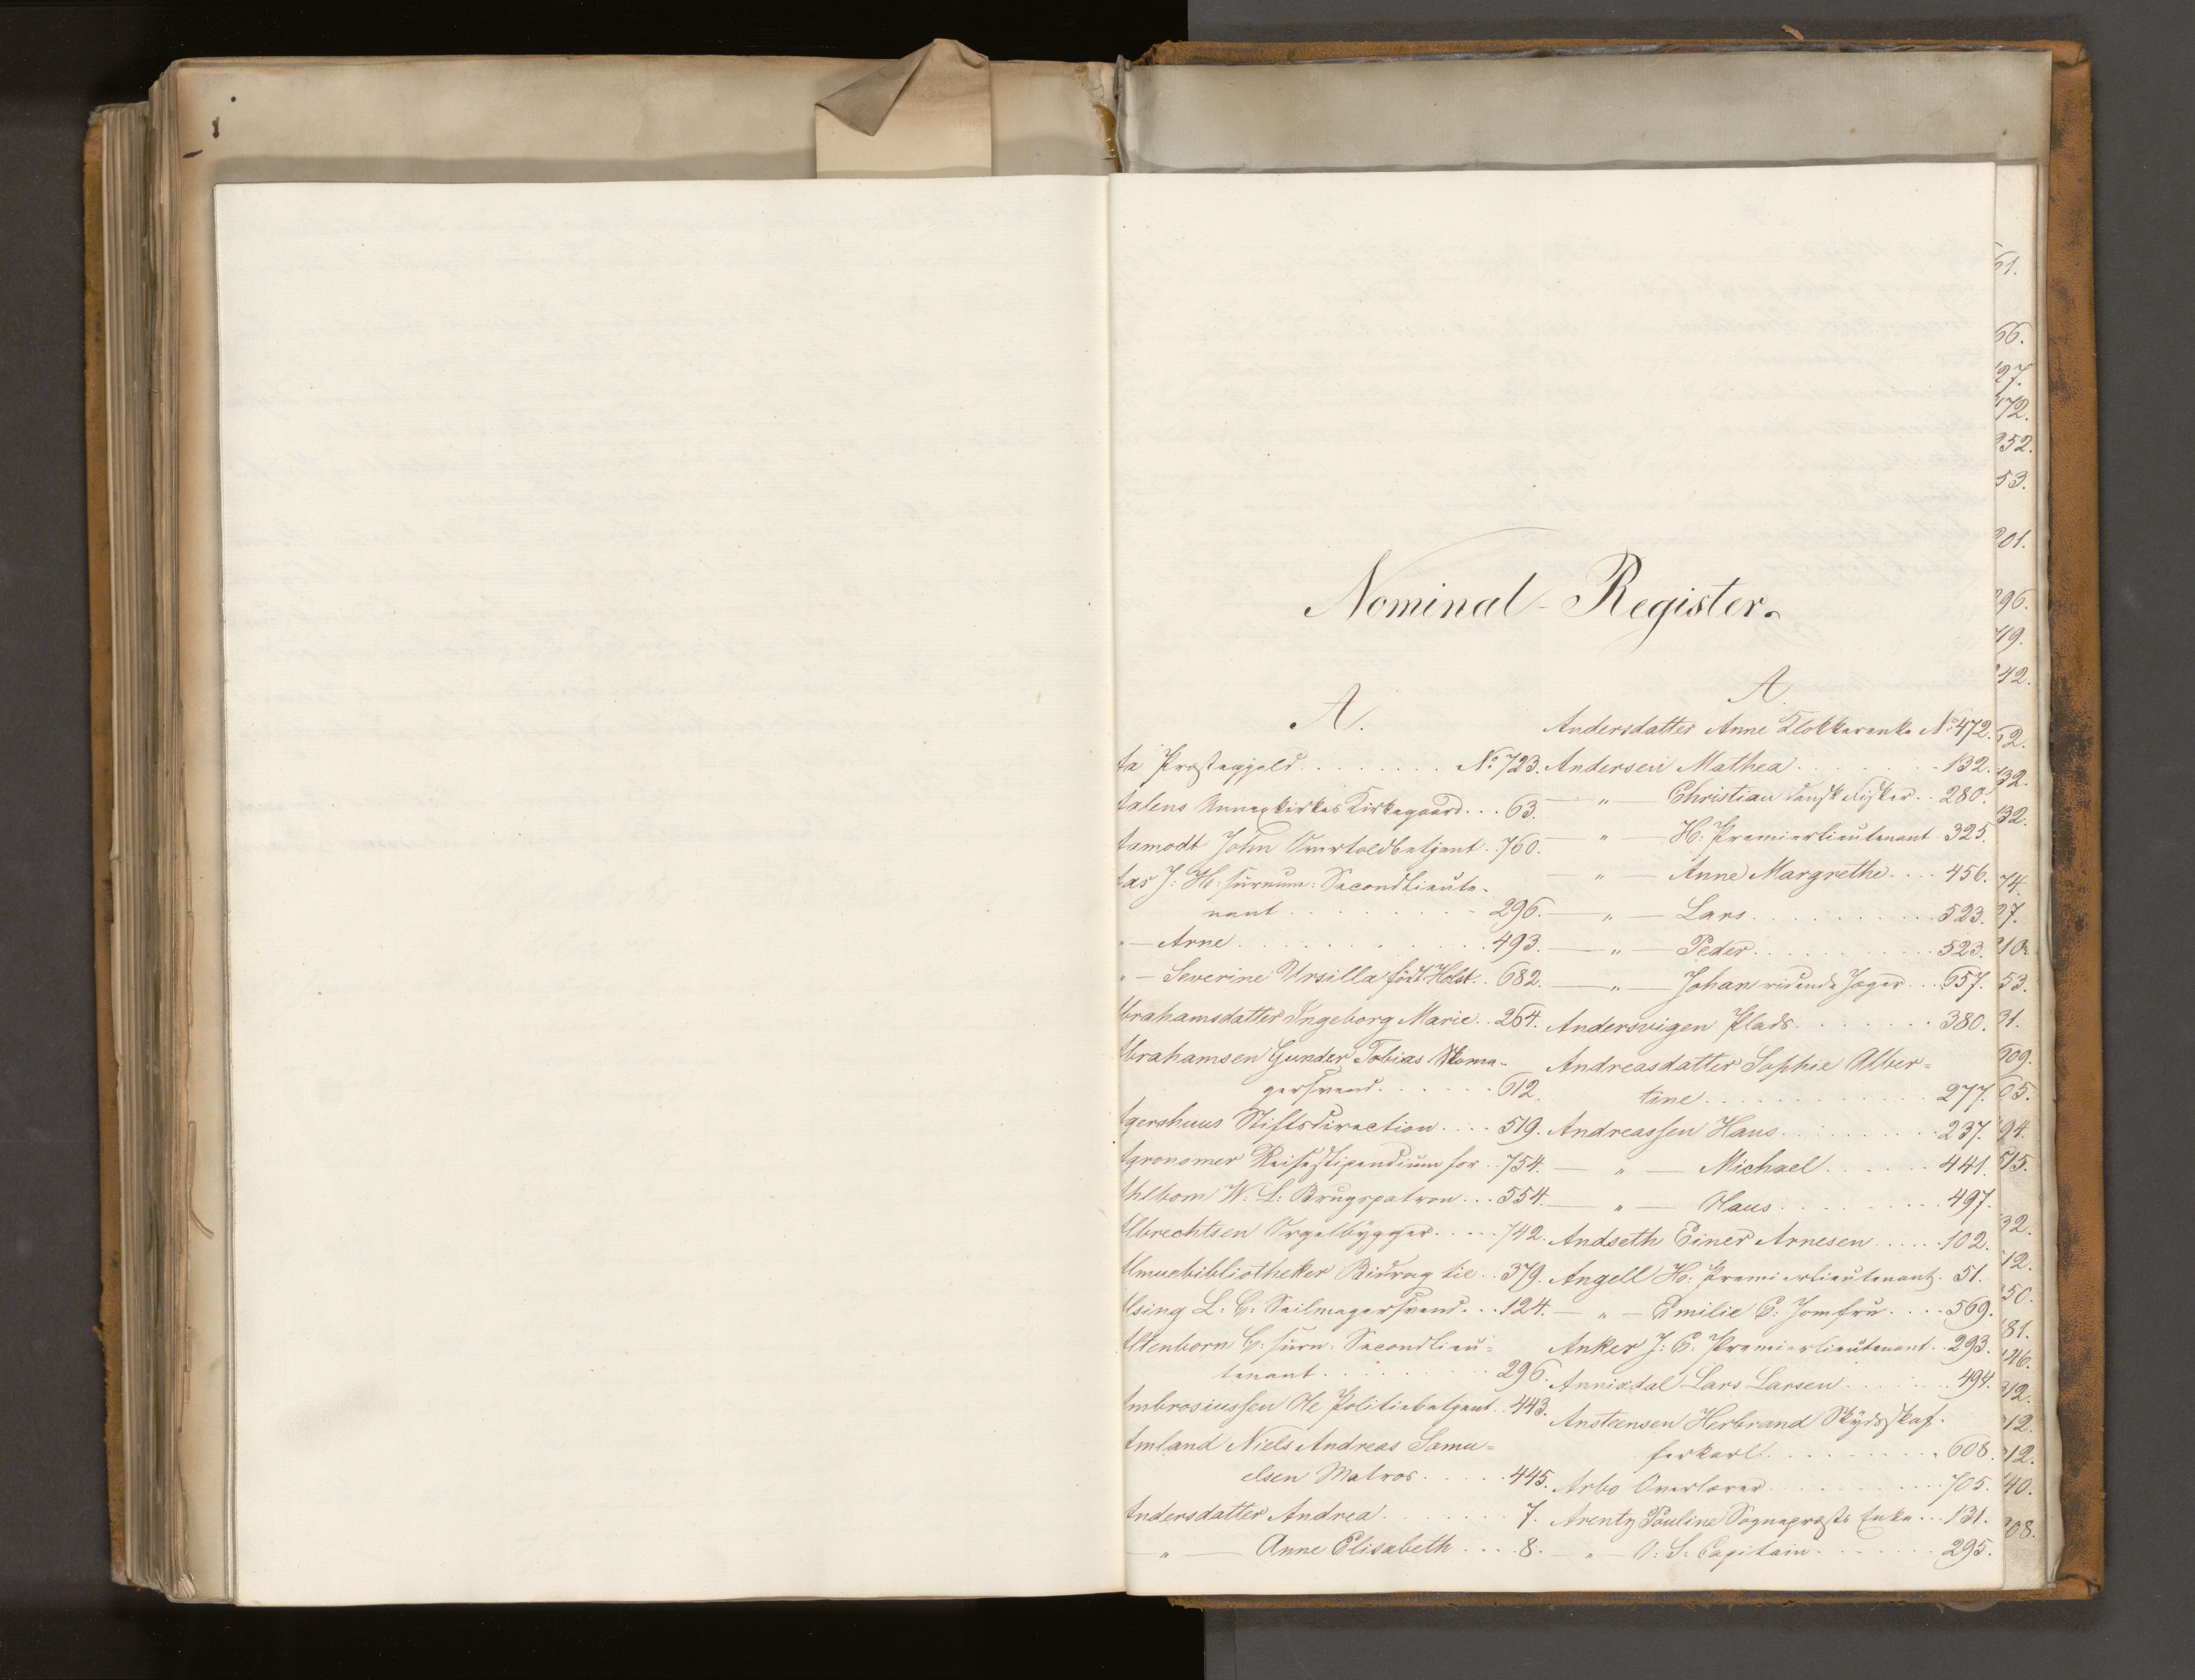 Nominal-Register.
A.
Aa Præstegjeld . . . . . . . . No. 723.
Aalens Annexkirkes Kirkegaard . . . 63.
Aamodt John Overtoldbetjent . . 760.
Aas J: H: surnum: Secondlieute-
nant . . . . . . . . . 296.
" — Arne . . . . . . . . . . . 493.
" — Severine Ursilla født Holst . . 682.
Abrahamsdatter Ingeborg Marie . . 264.
Abrahamsen Gunder Tobias Skoma-
gersvend . . . . . . 612.
Agershuus Stiftsdirection . . . . 519.
Agronomer Reisestipendium for . . 754.
Ahlbom W. L: Brugspatron . . . 554.
Albrechtsen Orgelbygger . . . . . 742.
Almuebibliotheker Bidrag til . . 379.
Alsing L: C: Seilmagersvend . . . 124.
Altenborn C: surn: Secondlieu=
tenant . . . . . . . . 296.
Ambrosiussen Ole Politiebetjent . . 443.
Amland Niels Andreas Samu=
elsen Matros . . . . . 445.
Andersdatter Andrea . . . . . . . 7.
— " — Anne Elisabeth . . . . 8.
A.
Andersdatter Anne Klokkerenke No. 472.
Andersen Mathea . . . . . . . 132.
— " — Christian dansk Fisker . . 280.
— " — H: Premierlieutenant . 325.
— " — Anne Margrethe . . . . 456.
— " — Lars . . . . . . . . . . 523.
— " — Peder . . . . . . . . . . 523.
— " — Johan ridende Jæger . . . 657.
Andersvigen Plads . . . . . . . 380.
Andreasdatter Sophie Alber=
tine . . . . . . . . . . . . 277.
Andreassen Hans . . . . . . . . . 237.
— " — Michael . . . . . . 441.
— " — Hans . . . . . . . . . 497.
Andseth Einer Arnesen . . . . . 102.
Angell H: Premierlieutenant . 51.
— " — Emilie C: Jomfru . . . . 569.
Anker J: C: Premierlieutenant . . 293.
Annixdal Lars Larsen . . . . . . 494.
Ansteensen Herbrand Skydsskaf-
ferkarl . . . . . . . . . . 608.
Arbo Overlærer . . . . . . . . . . 705.
Arentz Pauline Sognepræsts Enke . . . 131.
— " — O: S: Capitain . . . . . . . 295.